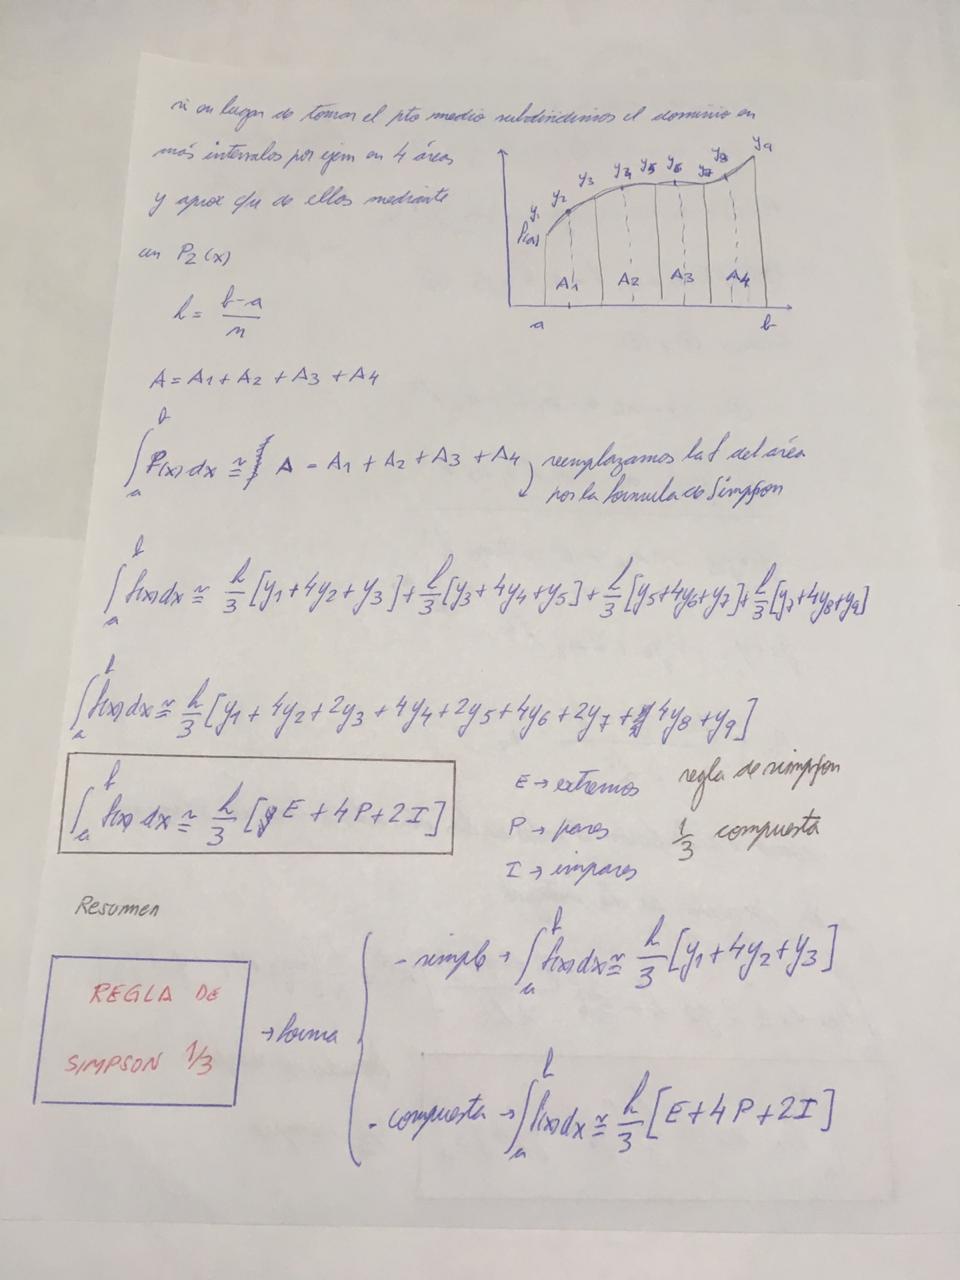 si en lugar de tomar el pto medio subdividimos el dominio en
más intervalos por ejem en 4 áreas
y aprox c/u de ellos mediante
un P₂(x)
h = (b-a)/n
A = A₁ + A₂ + A₃ + A₄
y₁ y₂ y₃ y₄ y₅ y₆ y₇ y₈ y₉
f(x)
A₁ A₂ A₃ A₄
a b
∫ₐᵇ f(x) dx ≅ A = A₁ + A₂ + A₃ + A₄
reemplazamos la f del área
por la formula de Simpson
∫ₐᵇ f(x) dx ≅ h/3 [y₁ + 4y₂ + y₃] + h/3 [y₃ + 4y₄ + y₅] + h/3 [y₅ + 4y₆ + y₇] + h/3 [y₇ + 4y₈ + y₉]
∫ₐᵇ f(x) dx ≅ h/3 [y₁ + 4y₂ + 2y₃ + 4y₄ + 2y₅ + 4y₆ + 2y₇ + 4y₈ + y₉]
∫ₐᵇ f(x) dx ≅ h/3 [E + 4P + 2I]
E → extremos
P → pares
I → impares
regla de simpson
1/3 compuesta
Resumen
REGLA DE
SIMPSON 1/3
→ forma
- simple → ∫ₐᵇ f(x) dx ≅ h/3 [y₁ + 4y₂ + y₃]
- compuesta → ∫ₐᵇ f(x) dx ≅ h/3 [E + 4P + 2I]